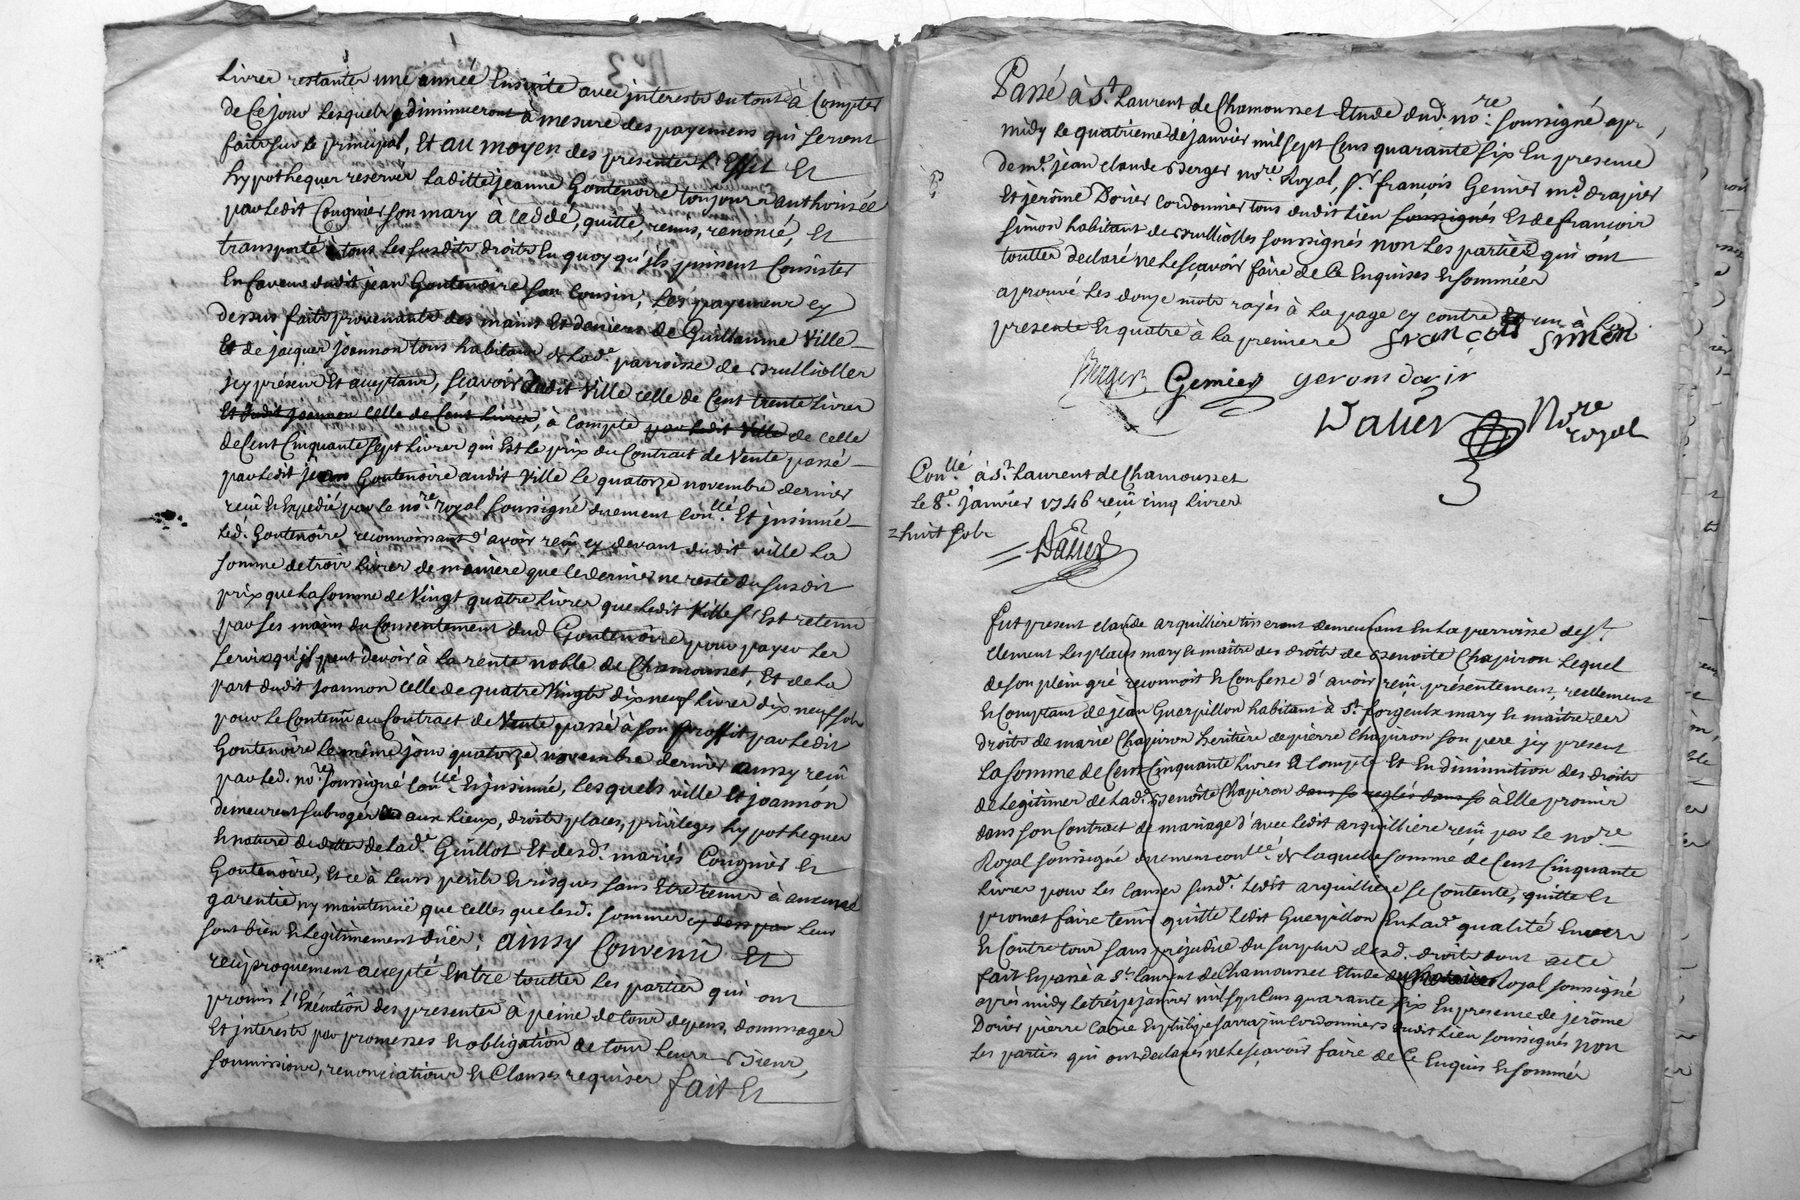 Livres restantes une année Ensuite avec interests du tout à Compter
de Ce jour Lesquels diminueront à mesure des payemens qui seront
faits sur le principal, Et au moyen des presentes L'Effet Et
hypotheques reservés Laditte jeanne Goutenoire toujours authorisée
par Ledit Cougnier son mary à cedde, quitte, remis, renoncé, Et
transporté tous Les susdits droits En quoy qu'ils puissent Consister
En faveur dudit jean Goutenoire son Cousin, Les payemens cy
dessus faits provenants des mains Et deniers de Guillaume Ville
Et de jacques joannon tous habitans de Lad.e parroisse de Brullioller
jcy présens Et acceptans, sçavoir dudit Ville celle de Cent trente Livres
Et dudit joannon celle de Cent Livres, à compte par Ledit Ville de celle
de Cent Cinquante sept Livres qui Est Le prix du Contract de Vente passé
par Ledit jean Goutenoire audit Ville Le quatorze novembre dernier
reçû Et Expedié par Le no.re royal soussigné duement Con.llé Et jnsinué
Led. Goutenoire reconnoissant d'avoir reçû cy devant dudit ville La
somme de trois Livres de maniere que Ce dernier ne reste du susdit
prix que La somme de Vingt quatre Livres que Ledit Ville s'Est retenu
par ses mains du Consentement dud Goutenoire pour payer Les
servis qu'il peut devoir à La rente noble de Chamousset, Et de La
part dudit joannon celle de quatre Vingts dix neuf Livres dix neuf sols
pour Le Contenû au Contract de Vente passé à son proffit par Ledit
Goutenoire Le même jour quatorze novembre dernier aussy reçû
par Led. no.re soussigné Con.llé Et jnsinué, Lesquels ville Et joannon
demeurent subrogés aux Lieux, droits, places, privileges hypotheques
Et nature de dettes de Lad.e Guillot Et desd. mariés Cougnier Et
Goutenoire, Et ce à Leurs perils Et risques sans Etre tenus à aucune
garentie ny maintenüe que celles que Lesd. sommes cy dess par Leur
sont bien Et Legitimement dües; ainsy Convenû Et
reciproquement accepté Entre touttes Les parties qui ont
promis L'Exécution des presentes à peine de tous depens, dommages
Et jnterests par promesses Et obligation de tous Leurs Biens,
soumissions, renonciations Et Clauses requises fait Et
Passé à S.t Laurent de Chamousset Etude dud. no.re soussigné apr
midy Le quatrieme de janvier mil sept Cens quarante six En presence
de m.e jean claude Berger no.re Royal, s.r françois Gemier m.d drapier
Et jerôme Dorier cordonnier tous dudit Lieu soussignés Et de francois
simon habitant de Brulliolles soussignés non Les parties qui ont
touttes declaré ne Le sçavoir faire de Ce Enquises Et sommées
aprouvé Les douze mots rayés à La page cy contre Et un à La
presente Et quatre à La premiere francois simon
Berger Gemier gerom dorir
Dalier No.re royal
Con.llé à S.t Laurent de Chamousset
Le 8.e janvier 1746 reçû cinq Livres
huit sols
Dalier
fut present claude arquilliere tisserant demeurant En La parroisse de S.t
Clement Les places mary Et maitre des droits de Benoite Chapiron Lequel
de son plein gré reconnoit Et Confesse d'avoir reçû présentement, reellement
Et Comptant de jean Guerpillon habitant à S.t forgeulx mary Et maitre des
droits de marie Chapiron heritiere de pierre Chapiron son pere jcy present
La somme de Cent Cinquante Livres à Compte Et En diminution des droits
de Legitimes de Lad.e Benoîte Chapiron dans so reglés dans so à Elle promis
dans son Contract de mariage d'avec Ledit arquilliere reçû par Le no.re
Royal soussigné duement con.llé de Laquelle somme de Cent Cinquante
Livres pour Les causes susd.es Ledit arquilliere se Contente, quitte Et
promet faire tenir quitte Ledit Guerpillon En Lad.e qualité Envers
Et Contre tous sans préjudice du surplus desd. droits dont acte
fait Et passé à S.t Laurent de Chamousset Etude du Notaire Royal soussigné
après midy Le treize janvier mil sept Cens quarante six En presence de jerôme
Dorier pierre Cadie Et philipe sarrazin Cordonniers dudit Lieu soussignés non
Les parties qui ont declarés ne Le sçavoir faire de Ce Enquis Et sommés